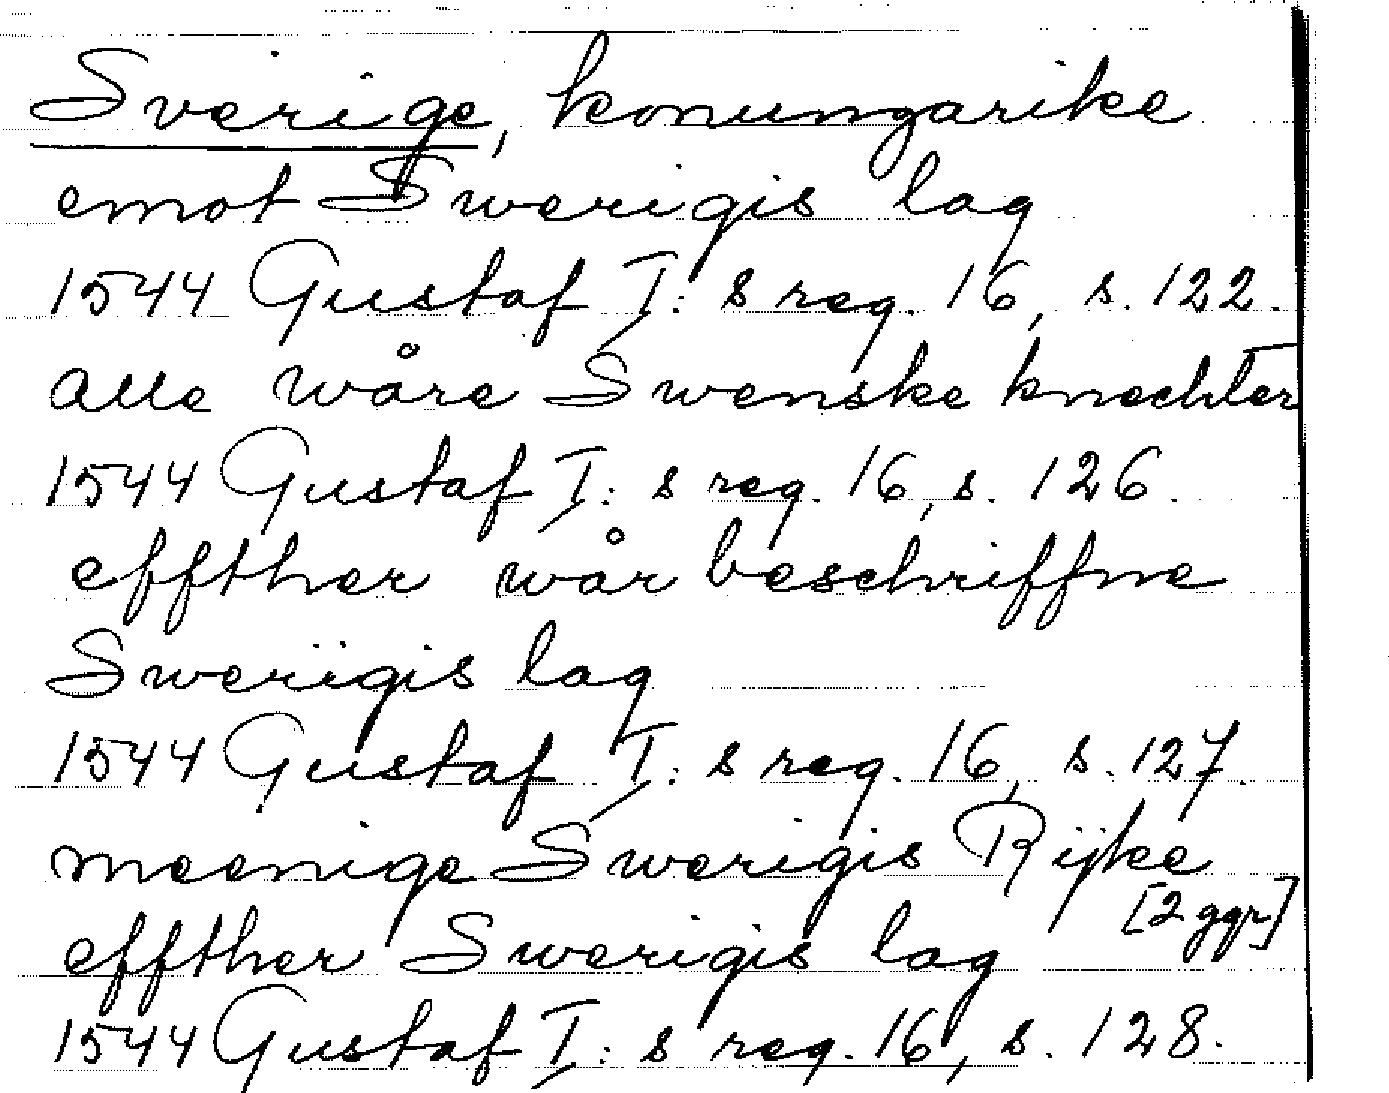 Sverige, konungarike
emot Swerigis lag
1544 Gustaf I:s reg. 16, s. 122.
alle wåre Swenske knechter
1544 Gustaf I:s reg. 16, s. 126.
effther wår beschriffne
Sweriigis lag
1544 Gustaf I:s reg. 16, s. 127.
meenige Swerigis Rijke
[2 ggr]
effther Swerigis lag
1544 Gustaf I:s reg. 16, s. 128.